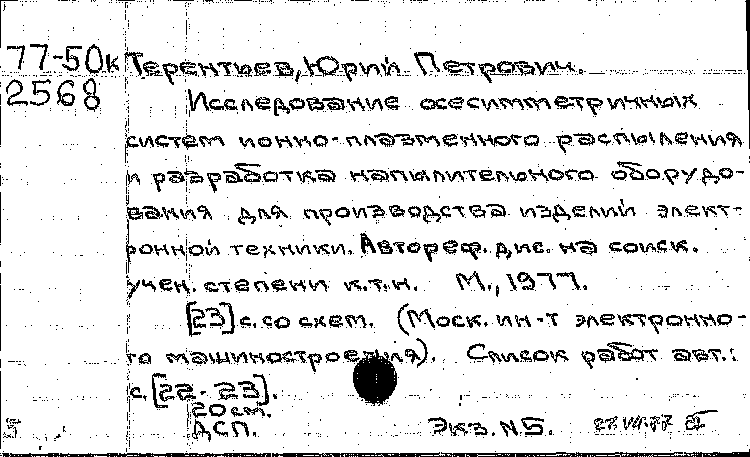 77-50к Терентьев, Юрий Петрович.
2568 Исследование осесимметричных
систем ионно-плазменного распыления
и разработка напылительного оборудо-
вания для производства изделий элект-
ронной техники. Автореф. дис. на соиск.
учен. степени к.т.н. М., 1977.
[23] с. со схем. (Моск. ин-т электронно-
го машиностроения). Список работ авт.:
с. [22-23].
20 см.
ДСП. Экз. №5.